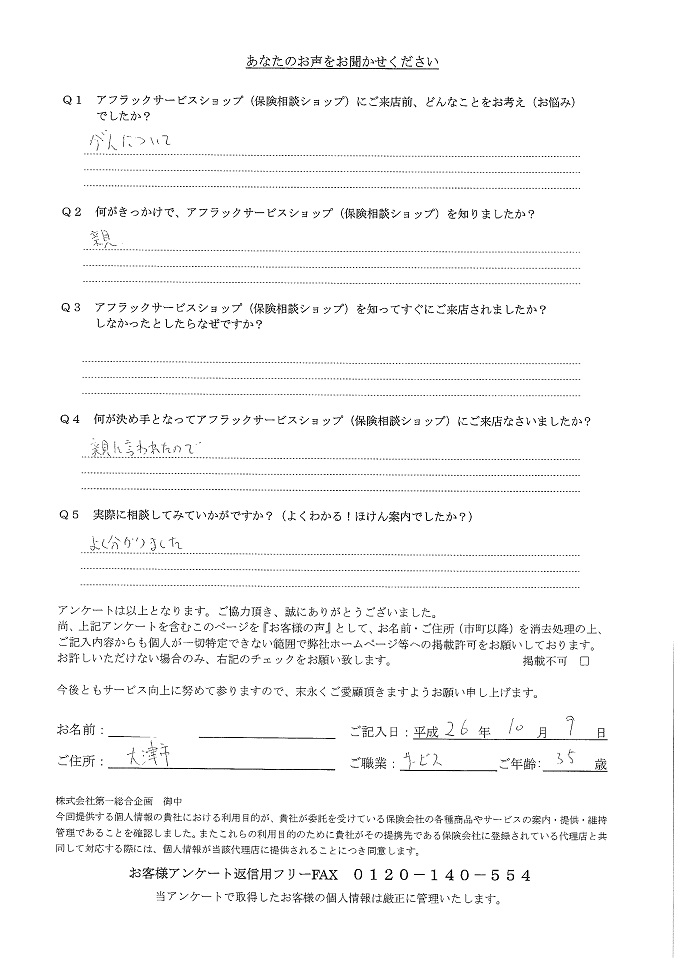 あなたのお声をお聞かせください
Q1 アフラックサービスショップ(保険相談ショップ)にご来店前、どんなことをお考え(お悩み)
でしたか?
がんについて
Q2 何がきっかけで、アフラックサービスショップ(保険相談ショップ)を知りましたか?
親
Q3 アフラックサービスショップ(保険相談ショップ)を知ってすぐにご来店されましたか?
しなかったとしたらなぜですか?
Q4 何が決め手となってアフラックサービスショップ(保険相談ショップ)にご来店なさいましたか?
親に言われたので
Q5 実際に相談してみていかがですか?(よくわかる!ほけん案内でしたか?)
よく分かりました
アンケートは以上となります。ご協力頂き、誠にありがとうございました。
尚、上記アンケートを含むこのページを『お客様の声』として、お名前・ご住所(市町以降)を消去処理の上、
ご記入内容からも個人が一切特定できない範囲で弊社ホームページ等への掲載許可をお願いしております。
お許しいただけない場合のみ、右記のチェックをお願い致します。 掲載不可 □
今後ともサービス向上に努めて参りますので、末永くご愛顧頂きますようお願い申し上げます。
お名前: ご記入日:平成 26 年 10 月 9 日
ご住所: 大津市 ご職業: サービス ご年齢: 35 歳
株式会社第一総合企画 御中
今回提供する個人情報の貴社における利用目的が、貴社が委託を受けている保険会社の各種商品やサービスの案内・提供・維持
管理であることを確認しました。またこれらの利用目的のために貴社がその提携先である保険会社に登録されている代理店と共
同して対応する際には、個人情報が当該代理店に提供されることにつき同意します。
お客様アンケート返信用フリーFAX 0120-140-554
当アンケートで取得したお客様の個人情報は厳正に管理いたします。